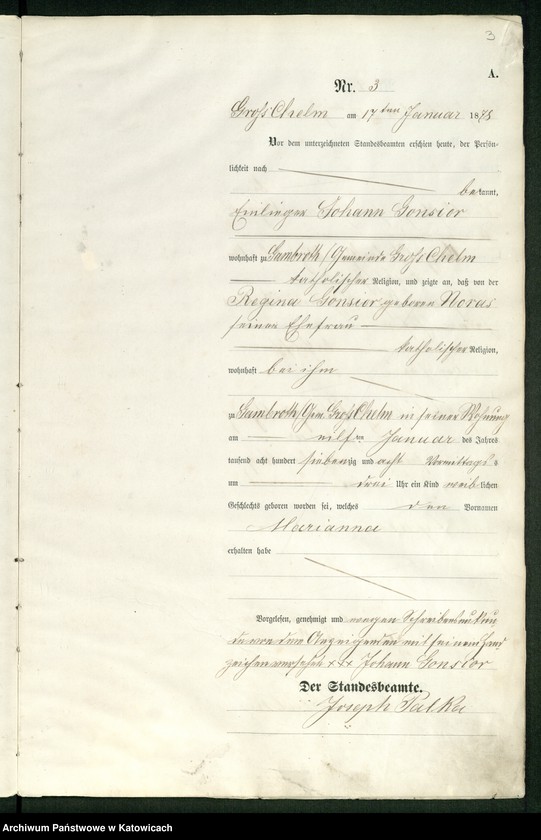 3
A.
Nr. 3
Gross Chelm am 17ten Januar 1878
Vor dem unterzeichneten Standesbeamten erschien heute, der Persön-
lichkeit nach
bekannt,
Einlieger Johann Gonsior
wohnhaft zu Sambroth/Gemeinde Gross Chelm
katholischer Religion, und zeigte an, daß von der
Regina Gonsior geboren Noras
seiner Ehefrau
katholischer Religion,
wohnhaft bei ihm
zu Sambroth/Gem. Gross Chelm in seiner Wohnung
am elften Januar des Jahres
tausend acht hundert siebenzig und acht Vormittags
um drei Uhr ein Kind weiblichen
Geschlechts geboren worden sei, welches den Vornamen
Marianna
erhalten habe
Vorgelesen, genehmigt und wegen Schreibensunkun
de von dem Anzeigenden mit seinem Hand
zeichen versehen +++ Johann Gonsior
Der Standesbeamte.
Joseph Palka
Archiwum Państwowe w Katowicach